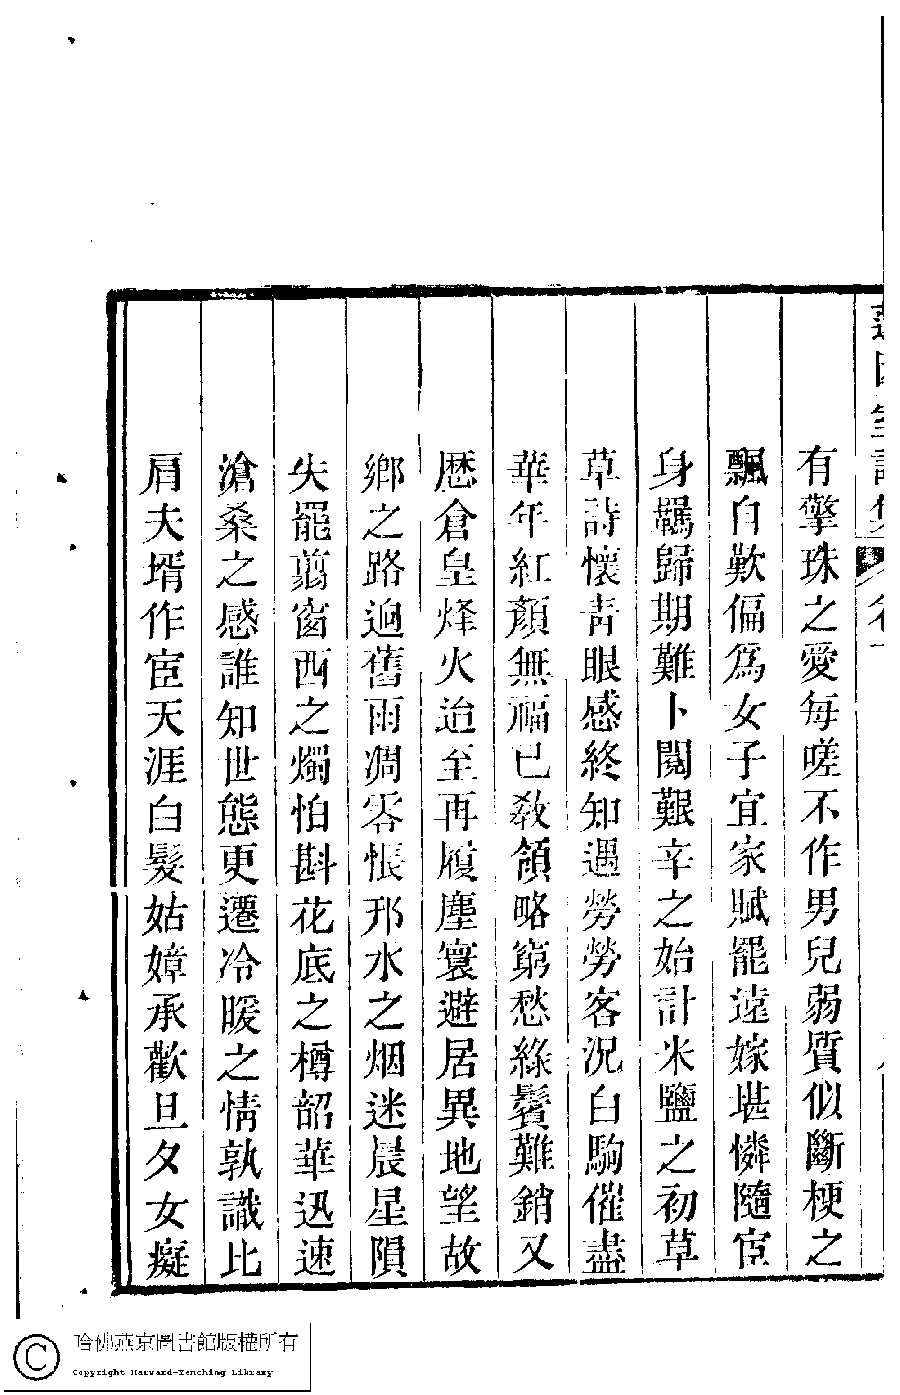 有擎珠之愛每嗟不作男兒弱質似斷梗之
飄自歎偏爲女子宜家賦罷遠嫁堪憐隨宦
身羈歸期難卜閱艱辛之始計米鹽之初草
草詩懷靑眼感終知遇勞勞客況白駒催盡
華年紅顏無福已敎領略窮愁綠鬢難銷又
歷倉皇烽火迨至再履塵寰避居異地望故
鄕之路迥舊雨凋零悵邗水之烟迷晨星隕
失罷翦窗西之燭怕斟花底之樽韶華迅速
滄桑之感誰知世態更遷冷暖之情孰識比
肩夫壻作宦天涯白髮姑嫜承歡旦夕女癡
哈佛燕京圖書館版權所有
Copyright Harvard-Yenching Library